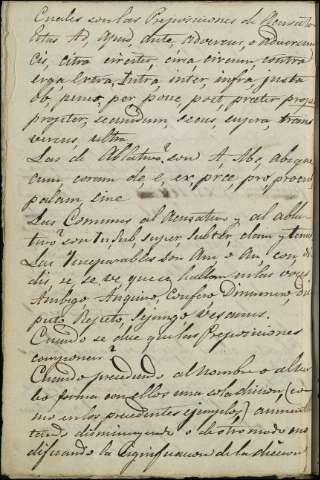 Cuales son las Preposiciones de Acusati
citra circiter, circa circum contra
erga Extra, Intra inter, infra, juxta
ob, penes, per, pone, post, præter prope
propter, secundum, secus, supra, trans
versus, ultra.
Las de Ablativo son A. Ab, absque
cum, coram de, e, ex, præ, pro, procul
palam, sine
Las Comunes al Acusativo y al abla
tivo son In sub, super, subter, clam y tenus
Las Inseparables son Am o An, con di
dis, re se, ve que se hallan en las voces
Ambigo Anquiro, Confero
puto Reputo, Sejungo Vesanus.
Cuando se dice que las Preposiciones
componen?
Cuando precediendo al Nombre o al Ver
bo forma con ellos una sola diccion (co
mo en los precedentes ejemplos) aumen
tando disminuyendo o de otro modo mo
dificando la significacion de la diccion